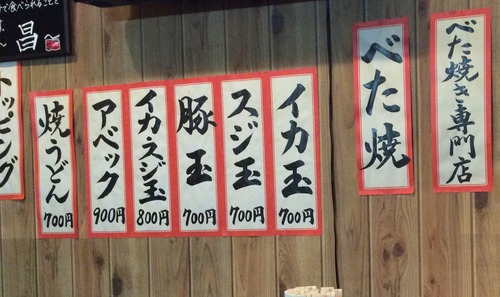 べた焼き専門店
べた焼
イカ玉
700円
スジ玉
700円
豚玉
700円
イカスジ玉
800円
アベック
900円
焼うどん
700円
トッピング
昌